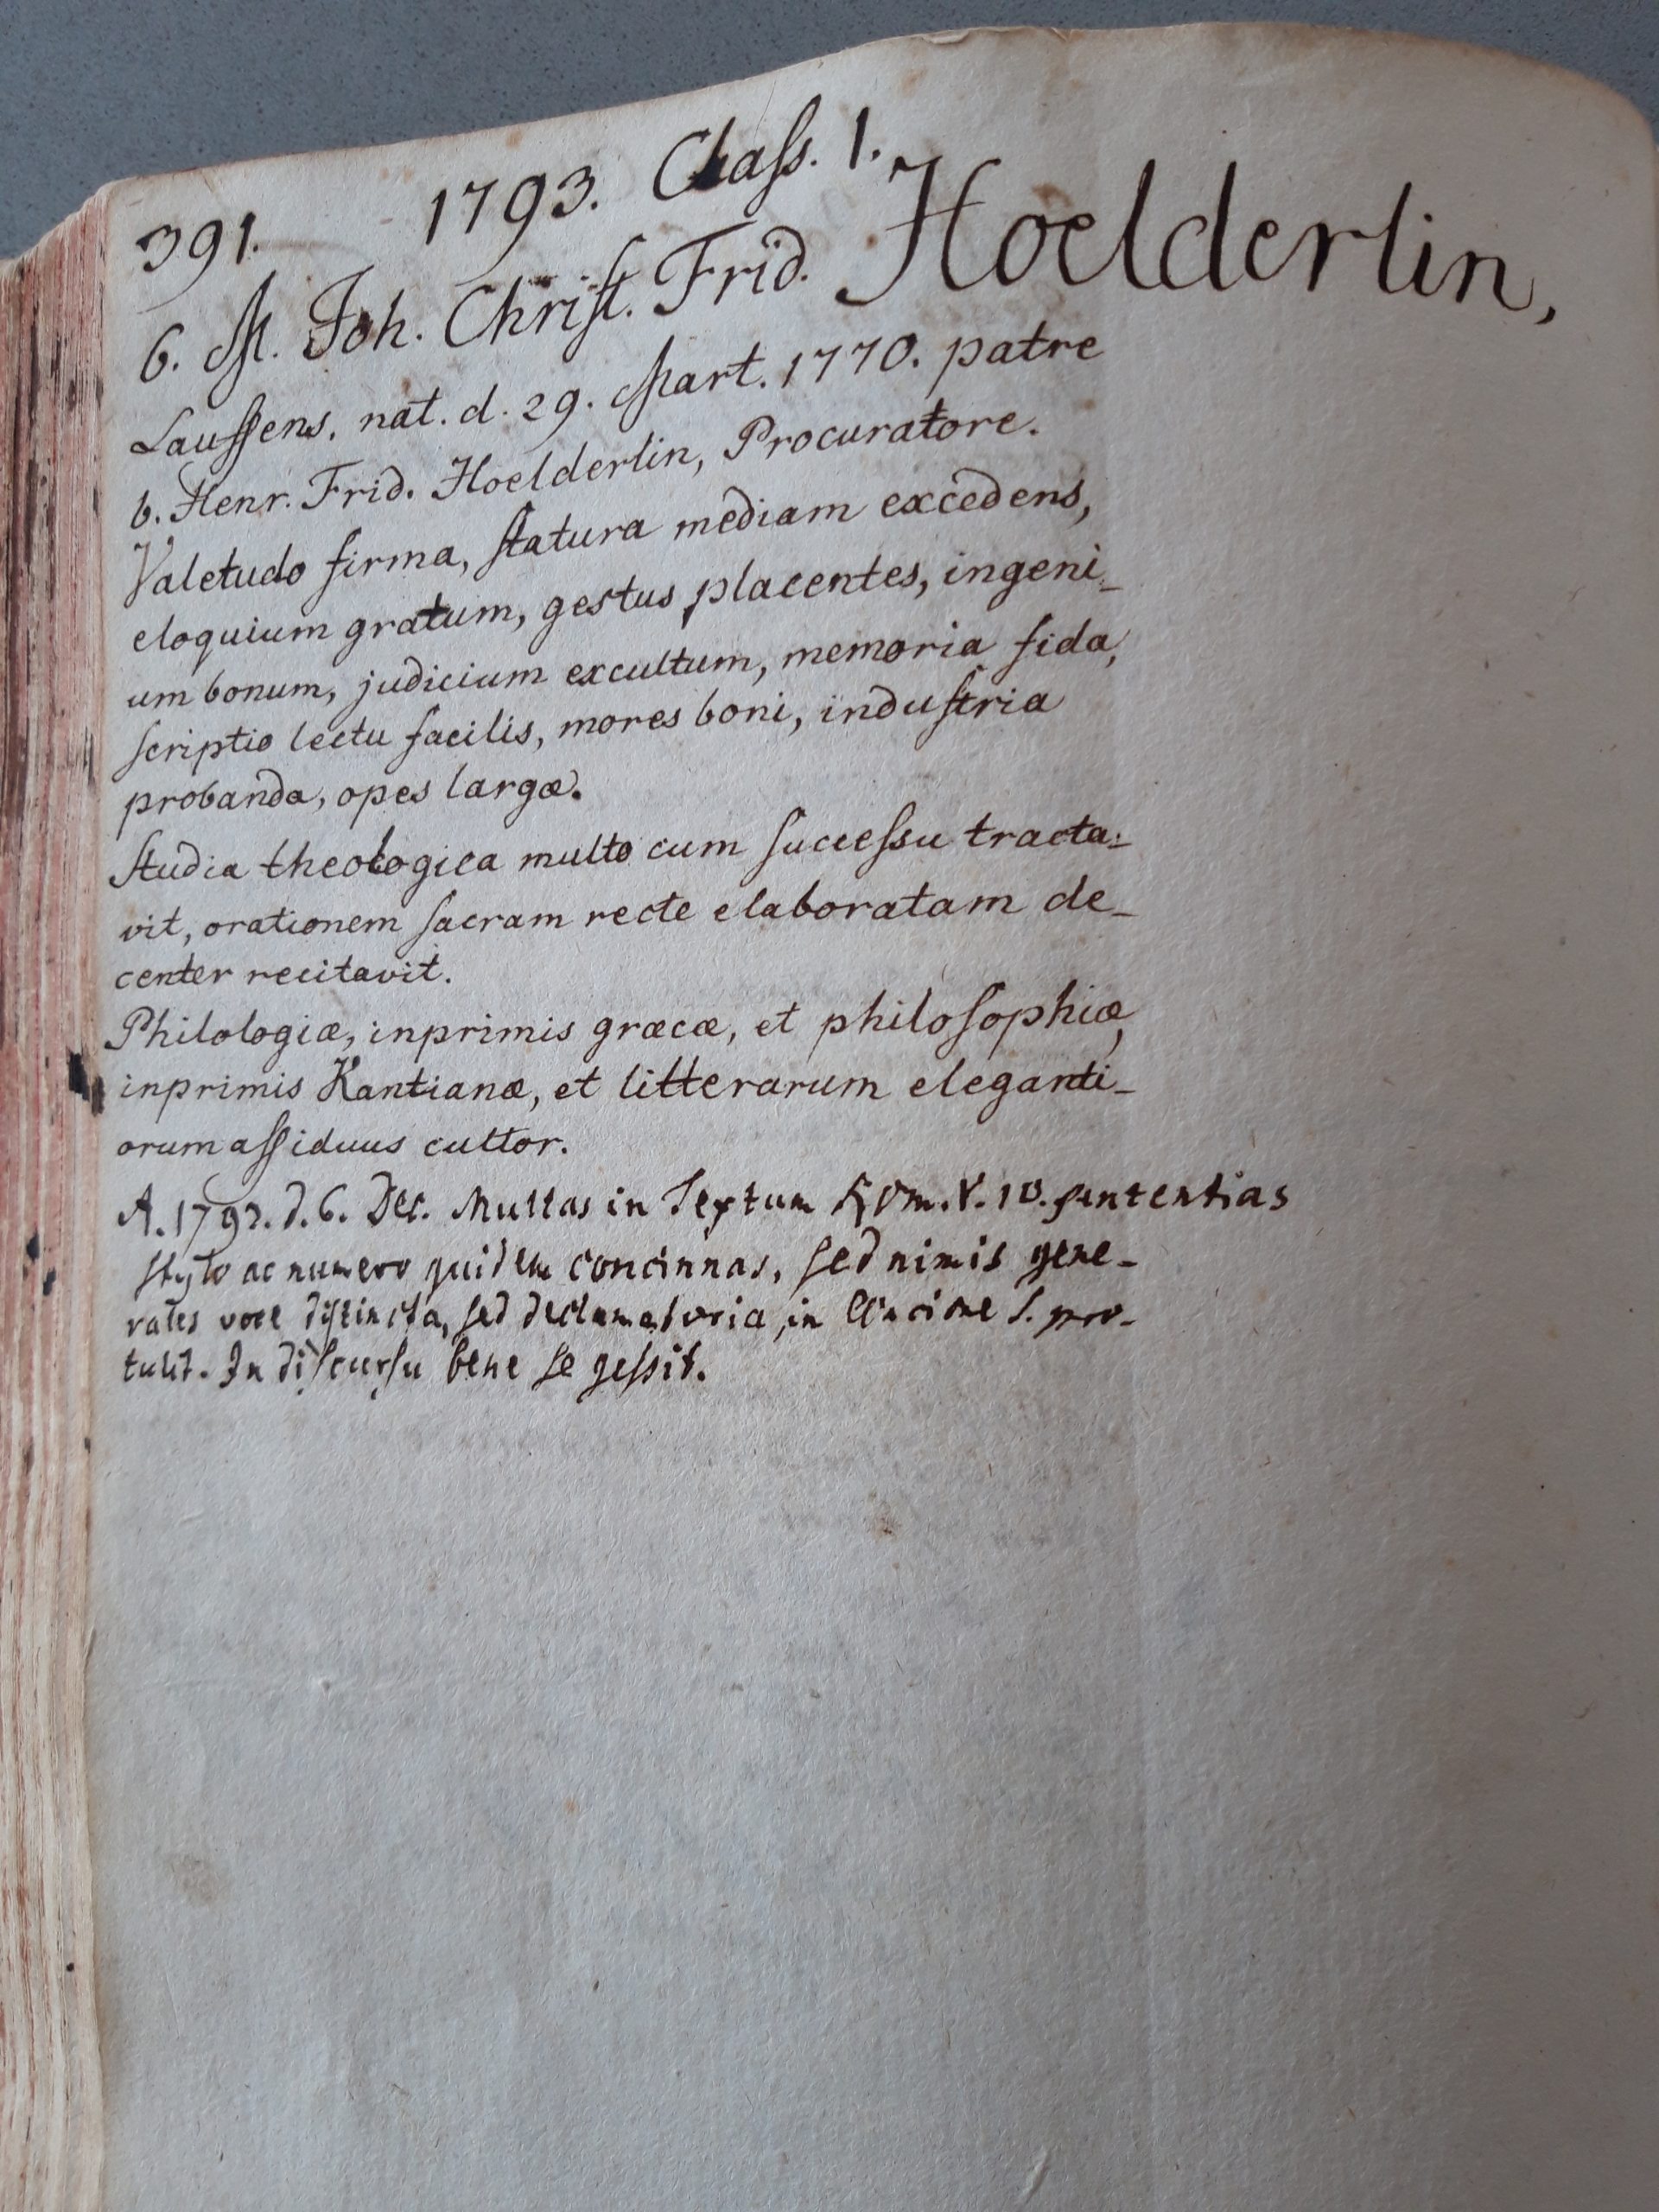 391. 1793. Class. 1.
6. M. Joh. Christ. Frid. Hoelderlin,
Lauffens. nat. d. 29. Mart. 1770. patre
b. Henr. Frid. Hoelderlin, Procuratore.
Valetudo firma, statura mediam excedens,
eloquium gratum, gestus placentes, ingeni-
um bonum, judicium excultum, memoria fida,
scriptio lectu facilis, mores boni, industria
probanda, opes largæ.
Studia theologica multo cum successu tracta-
vit, orationem sacram recte elaboratam de-
center recitavit.
Philologiæ, inprimis græcæ, et philosophiæ,
inprimis Kantianæ, et litterarum eleganti-
orum assiduus cultor.
A. 1793. d. 6. Dec. Multas in Textum Rom. V. 10. sententias
stylo ac numero quidem concinnas, sed nimis gene-
rales voce distincta, sed declamatoria, in Concione S. pro-
tulit. In discursu bene se gessit.